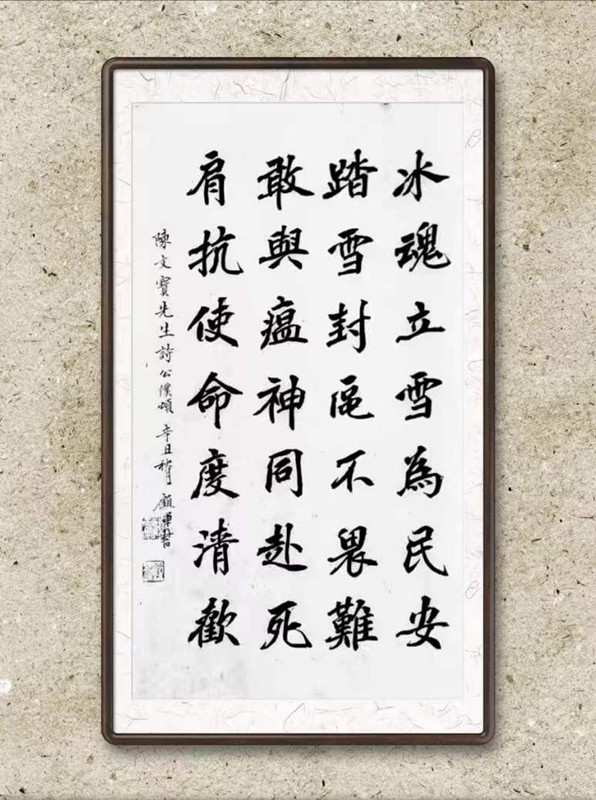 冰魂立雪為民安
踏雪封區不畏難
敢與瘟神同赴死
肩抗使命度清歡
陳文寶先生詩公僕頌 辛丑 月 顧 書